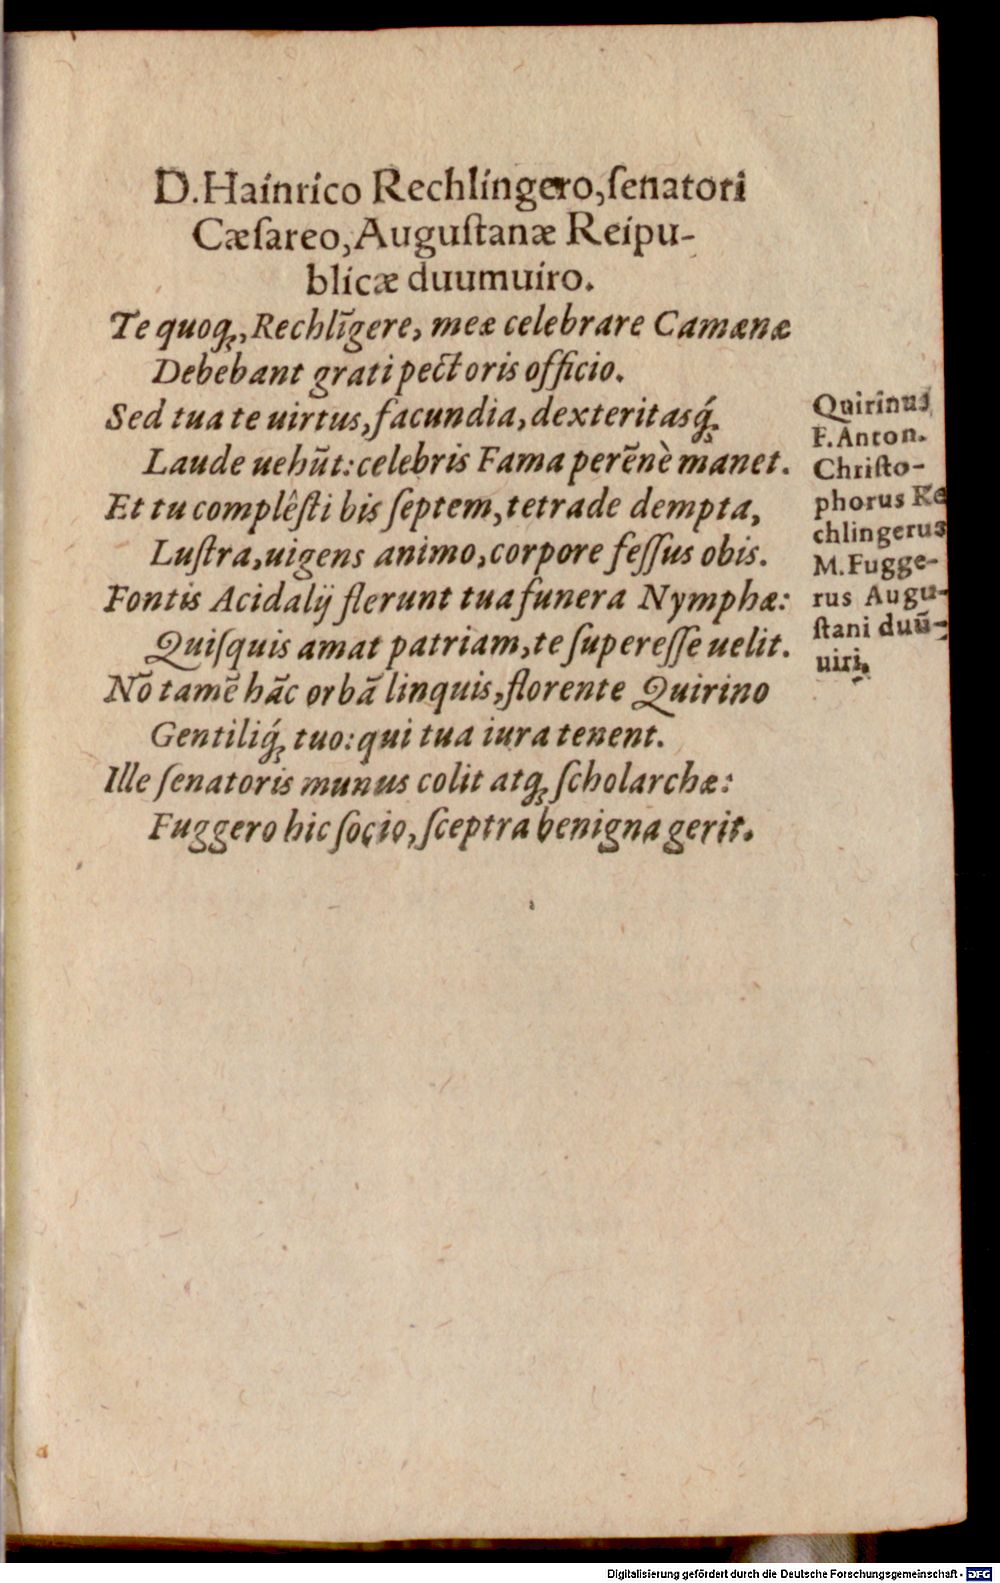 D. Hainrico Rechlingero, ſenatori
Cæſareo, Auguſtanæ Reipu-
blicæ duumuiro.
Te quoqꝫ, Rechlīgere, meæ celebrare Camænæ
Debebant grati pectoris officio.
Sed tua te uirtus, facundia, dexteritasqꝫ́
Laude uehūt: celebris Fama perēnè manet.
Et tu complêſti bis ſeptem, tetrade dempta,
Luſtra, uigens animo, corpore feſſus obis.
Fontis Acidalij flerunt tua funera Nymphæ:
Quiſquis amat patriam, te ſupereſſe uelit.
Nō tamē hāc orbā linquis, florente Quirino
Gentiliqꝫ́ tuo: qui tua iura tenent.
Ille ſenatoris munus colit atqꝫ ſcholarchæ:
Fuggero hic ſocio, ſceptra benigna gerit.
Quirinus
F. Anton.
Chriſto-
phorus Re
chlingerus
M. Fugge-
rus Augu-
ſtani duū-
uiri.
Digitalisierung gefördert durch die Deutsche Forschungsgemeinschaft - DFG